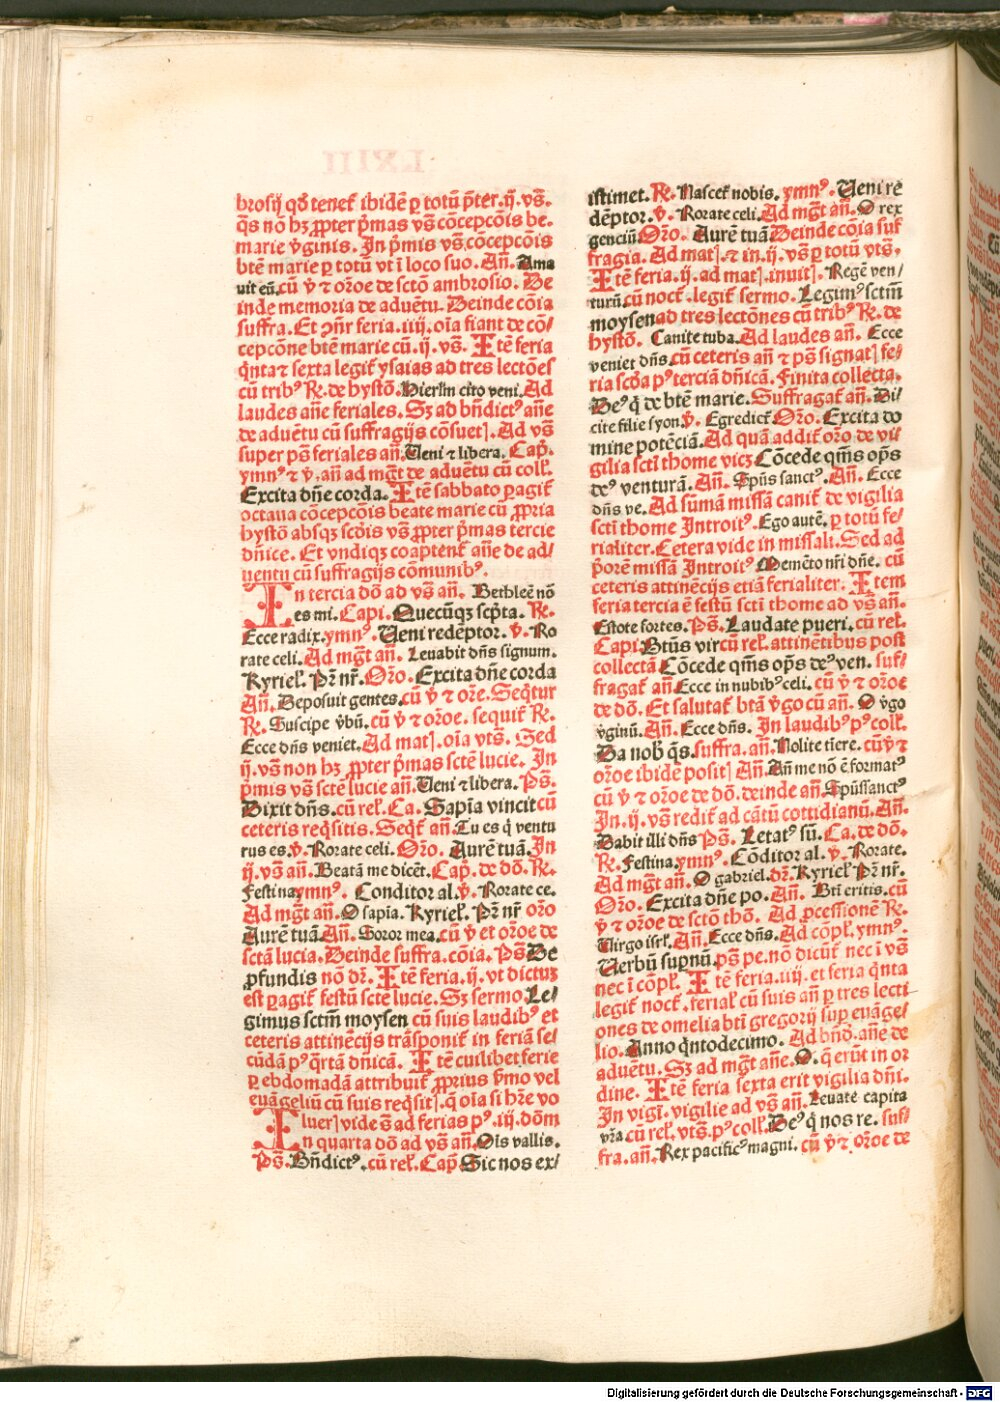 brosij qđ tenet᷑ ibidē ꝑ totū p̄ter. ij. vs̄.
q̄s nō hꝫ ꝓpter p̄mas vs̄ cōcepcōis be.
marie v̄ginis. In p̄mis vs̄ cōcepcōis
btē marie ꝑ totū vt ī loco suo. An̄. Ama
uit eū. cū v̄ ⁊ oroē de sctō ambrosio. De
inde memoria de aduētu. Deinde cōia
suffra. Et 9n̄r feria. iiij. oīa fiant de cō/
cepcōne btē marie cū. ij. vs̄. Itē feria
q̄nta ⁊ sexta legit᷑ ysaias ad tres lectōes
cū tribꝰ R̄. de hystō. Hierlm̄ cito veni. Ad
laudes an̄e feriales. Sꝫ ad bn̄dictꝰ an̄e
de aduētu cū suffragijs cōsuet]. Ad vs̄
super ps̄ feriales an̄. Veni ⁊ libera. Cap̄.
ymnꝰ ⁊ v̄. an̄ ad mḡt de aduētu cū coll᷑.
Excita dn̄e corda. Itē sabbato ꝑagit᷑
octaua cōcepcōis beate marie cū ꝓpria
hystō absqꝫ scd̄is vs̄ ꝓpter p̄mas tercie
dn̄ice. Et vndiqꝫ coaptent᷑ an̄e de ad/
uentu cū suffragijs cōmunibꝰ.
In tercia dō ad vs̄ an̄. Bethleē nō
es mi. Capi. Quecūqꝫ scp̄ta. R̄.
Ecce radix. ymnꝰ. Veni redēptor. v̄. Ro
rate celi. Ad mḡt an̄. Leuabit dn̄s signum.
Kyriel᷑. Pr̄ nr̄. Orō. Excita dn̄e corda
An̄. Deposuit gentes. cū v̄ ⁊ orē. Seq̄tur
R̄. Suscipe v̄bū. cū v̄ ⁊ oroē. sequit᷑ R̄.
Ecce dn̄s veniet. Ad mat]. oīa vts̄. Sed
ij. vs̄ non hꝫ ꝓpter p̄mas sctē lucie. In
p̄mis vs̄ sctē lucie an̄. Veni ⁊ libera. Ps̄.
Dixit dn̄s. cū rel᷑. Ca. Sapīa vincit cū
ceteris req̄sitis. Seq̄t᷑ an̄. Tu es q̄ ventu
rus es. v̄. Rorate celi. Orō. Aurē tuā. In
ij. vs̄ an̄. Beatā me dicēt. Cap̄. de dō. R̄.
Festina ymnꝰ. Conditor al. v̄. Rorate ce.
Ad mḡt an̄. O sapīa. Kyriel᷑. Pr̄ nr̄ orō
Aurē tuā An̄. Soror mea. cū v̄ et oroē de
sctā lucia. Deinde suffra. cōia. Ps̄ De
ꝓfundis nō dr̄. Itē feria. ij. vt dictuꝫ
est ꝑagit᷑ festū sctē lucie. Sꝫ sermo Le/
gimus sctm̄ moysen cū suis laudibꝰ et
ceteris attinēcijs trāsponit᷑ in feriā se/
cūdā pꝰ q̄rtā dn̄icā. Itē cuilibet ferie
ꝑ ebdomadā attribuit᷑ ꝓprius p̄mo vel
euāgeliū cū suis req̄sit]. q̄ oīa si hr̄e vo
luer] vide s̄ ad ferias pꝰ. iij. dōm
In quarta dō ad vs̄ an̄. Oīs vallis.
Ps̄. Bn̄dictꝰ. cū rel᷑. Cap̄ Sic nos ex/
istimet. R̄. Nascet᷑ nobis. ymnꝰ. Veni rē
dēptor. v̄. Rorate celi. Ad mḡt an̄. O rex
genciū Orō. Aurē tuā Deinde cōia suf
fragia. Ad mat]. ⁊ in. ij. vs̄ ꝑ totū vts̄.
Itē feria. ij. ad mat]. inuit]. Regē ven/
turū cū noct᷑. legit᷑ sermo. Legimꝰ sctm̄
moysen ad tres lectōnes cū tribꝰ R̄. de
hystō. Canite tuba. Ad laudes an̄. Ecce
veniet dn̄s cū ceteris an̄ ⁊ ps̄ signat] fe/
ria scd̄a pꝰ terciā dn̄icā. Finita collecta.
Deꝰ q̄ de btē marie. Suffragat᷑ an̄. Di/
cite filie syon. v̄. Egrediet᷑ Orō. Excita do
mine potēciā. Ad quā addit᷑ orō de vi/
gilia sctī thome vicꝫ Cōcede qm̄s op̄s
deꝰ venturā. An̄. Sp̄us sanctꝰ. An̄. Ecce
dn̄s ve. Ad sūmā missā canit᷑ de vigilia
sctī thome Introitꝰ. Ego autē. ꝑ totū fe/
rialiter. Cetera vide in missali. Sed ad
p̄orē missā Introitꝰ Memēto nr̄i dn̄e. cū
ceteris attinēcijs etiā ferialiter. Item
feria tercia ē festū sctī thome ad vs̄ an̄.
Estote fortes. Ps̄. Laudate pueri. cū rel᷑.
Capi. Btūs vir cū rel᷑. attinētibus post
collectā Cōcede qm̄s op̄s deꝰ ven. suf/
fragat᷑ an̄ Ecce in nubibꝰ celi. cū v̄ ⁊ oroē
de dō. Et salutat᷑ btā v̄go cū an̄. O v̄go
v̄ginū. An̄. Ecce dn̄s. In laudibꝰ pꝰ coll᷑.
Da nob̄ q̄s. suffra. an̄. Nolite tiere. cū v̄ ⁊
oroē ibidē posit] An̄. An̄ me nō ē formatꝰ
cū v̄ ⁊ oroē de dō. deinde an̄ Sp̄ussanctꝰ
In. ij. vs̄ redit᷑ ad cātū cottidianū. An̄.
Dabit illi dn̄s Ps̄. Letatꝰ sū. Ca. de dō.
R̄. Festina. ymnꝰ. Cōditor al. v̄. Rorate.
Ad mḡt an̄. O gabriel. dr̄. Kyriel᷑ Pr̄ nr̄.
Orō. Excita dn̄e po. An̄. Btī eritis. cū
v̄ ⁊ oroē de sctō thō. Ad ꝓcessionē R̄.
Virgo isrl᷑. An̄. Ecce dn̄s. Ad cōpl᷑. ymnꝰ.
Verbū sup̄nū. ps̄ pe. nō dicūt᷑ nec ī vs̄
nec ī cōpl᷑. Itē feria. iiij. et feria q̄nta
legit᷑ noct᷑. ferial᷑ cū suis an̄ ꝑ tres lecti
ones de omelia btī gregorij suꝑ euāge/
lio. Anno q̄ntodecimo. Ad bn̄d. an̄e de
aduētu. Sꝫ ad mḡt an̄e. O. q̄ erūt in or
dine. Itē feria sexta erit vigilia dn̄i.
In vigī. vigilie ad vs̄ an̄. Leuate capita
vr̄a. cū rel᷑. vts̄. pꝰ coll᷑. Deꝰ q̄ nos re. suf/
fra. an̄. Rex pacificꝰ magni. cū v̄ ⁊ oroē de
Digitalisierung gefördert durch die Deutsche Forschungsgemeinschaft - DFG